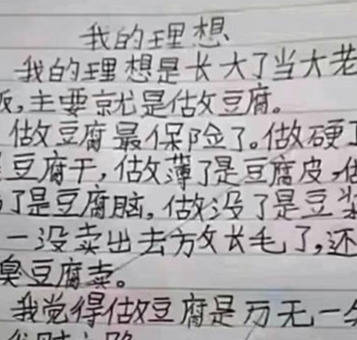 我的理想
我的理想是长大了当大老
板,主要就是做豆腐。
做豆腐最保险了。做硬了
豆腐干,做薄了是豆腐皮,做
了是豆腐脑,做没了是豆浆
一没卖出去放长毛了,还
臭豆腐卖。
我觉得做豆腐是万无一失